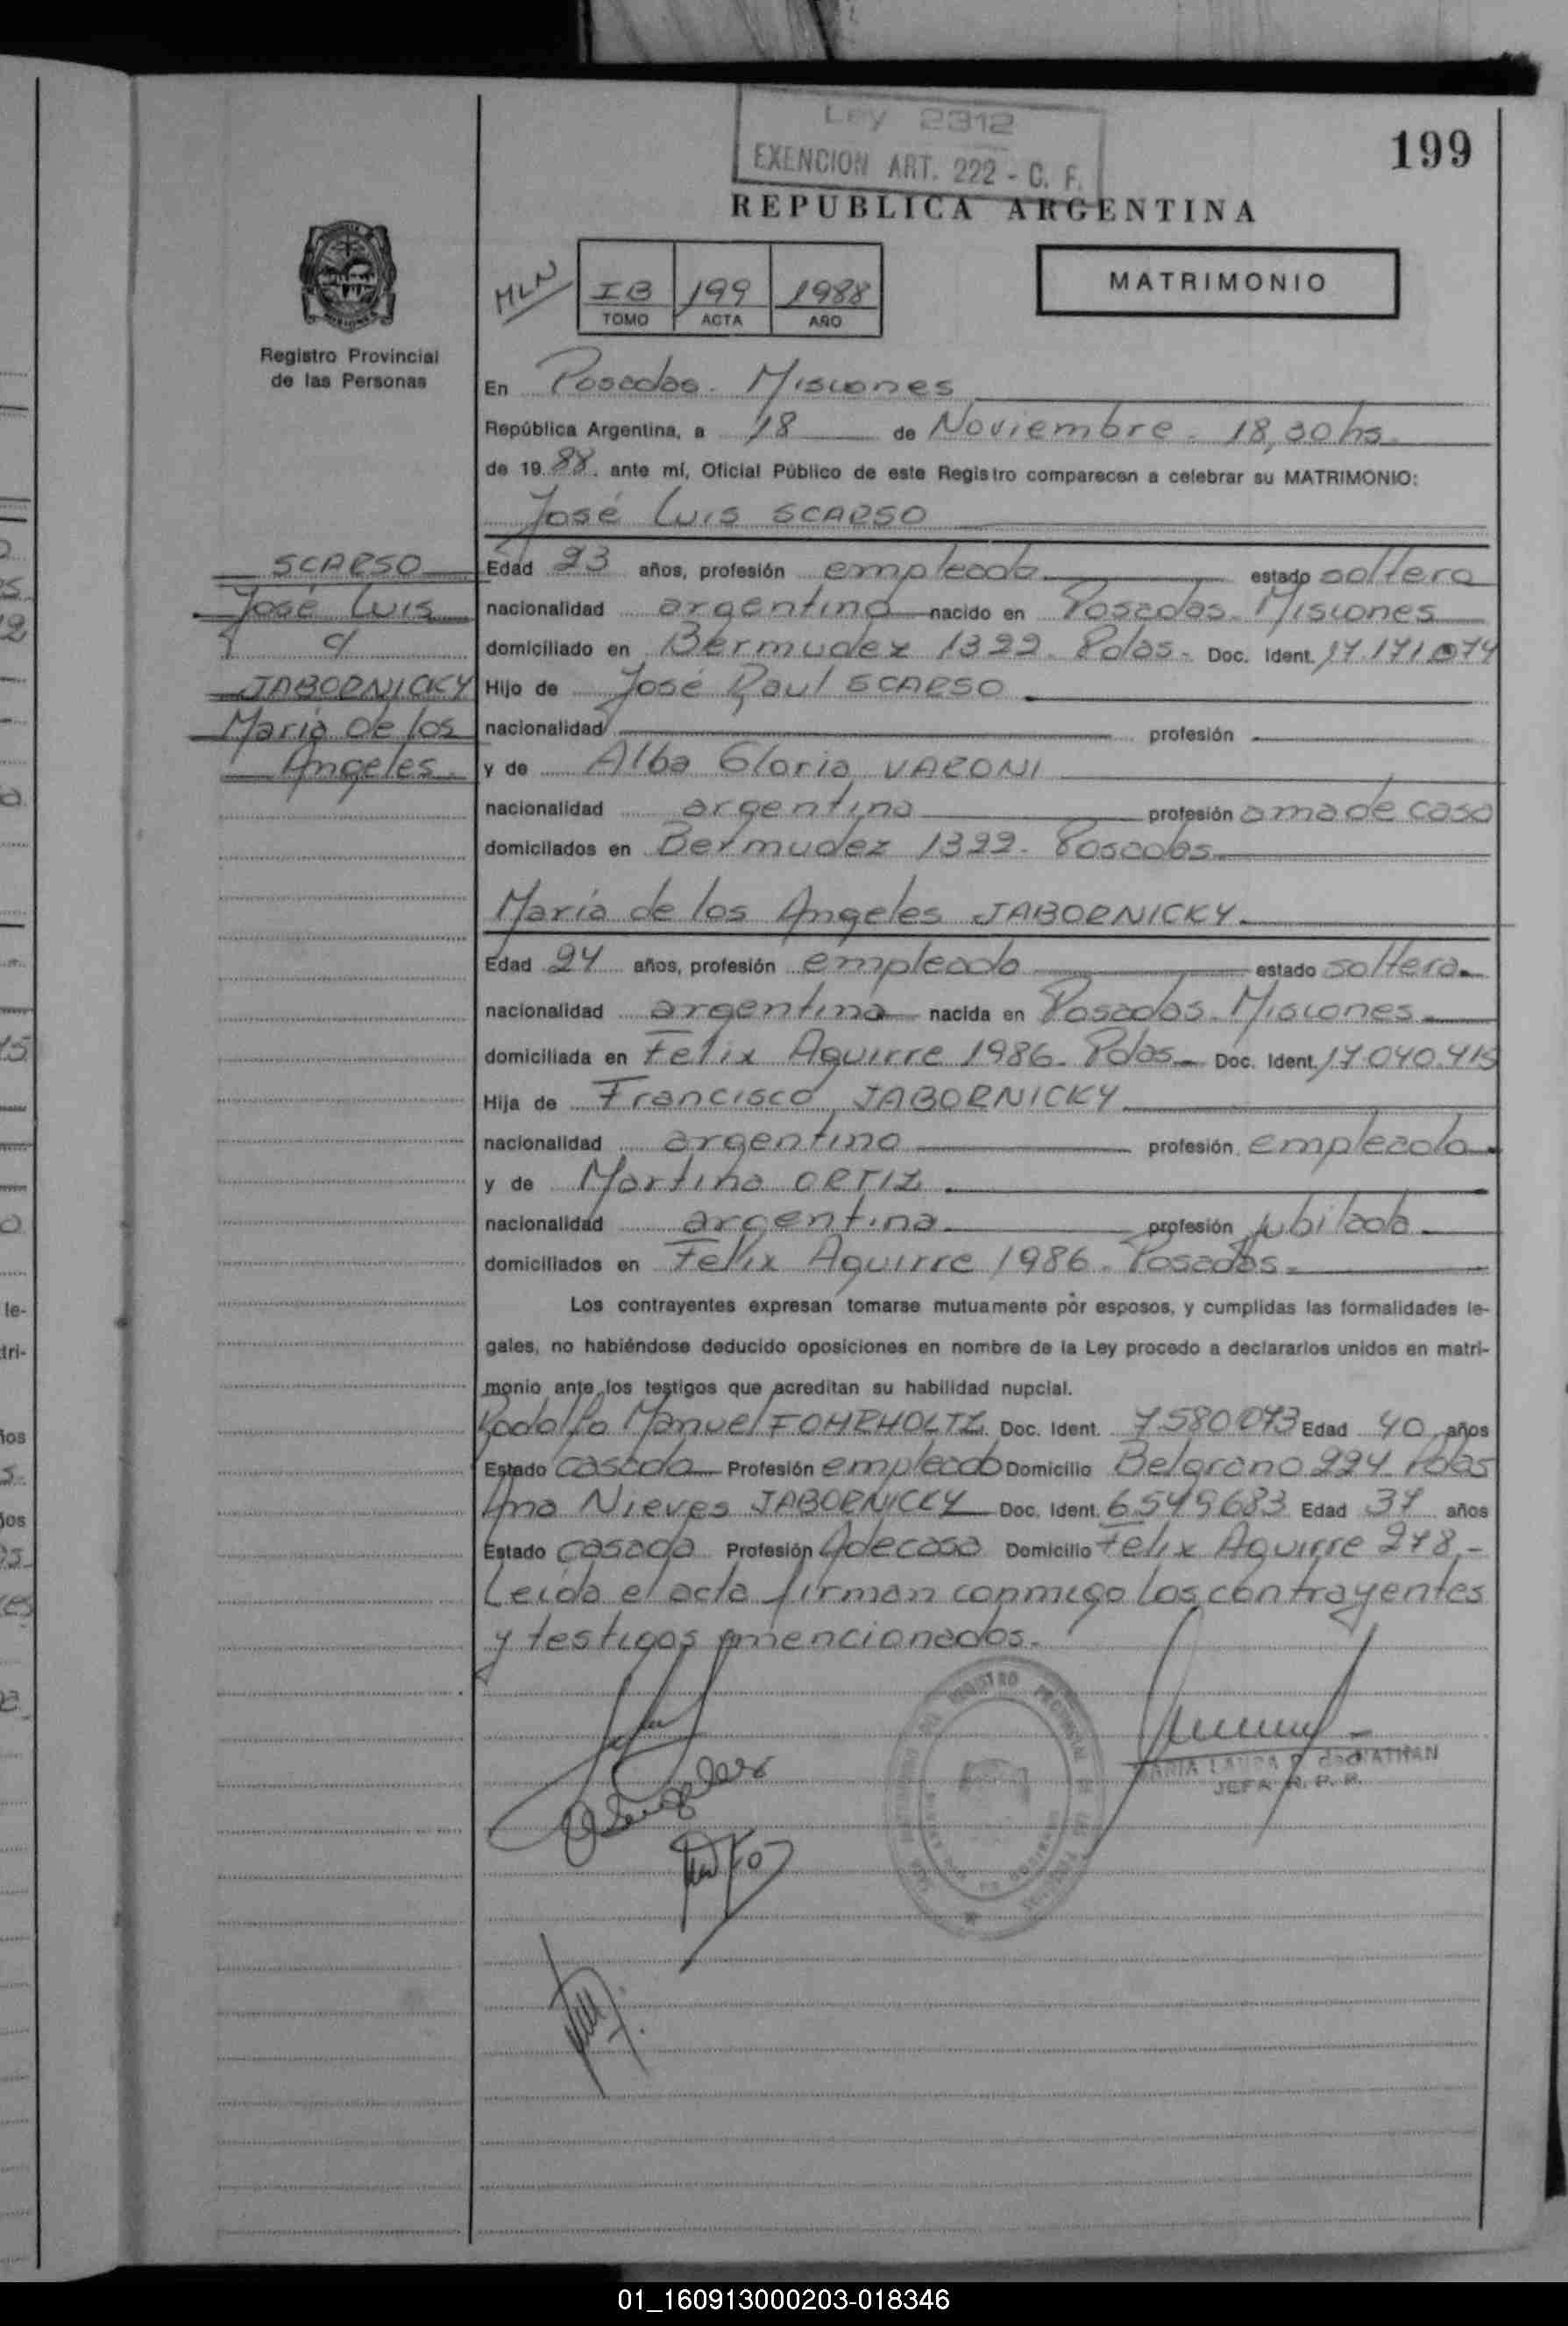 Ley 2312
EXENCION ART. 222 - C. F.
199
REPUBLICA ARGENTINA
MATRIMONIO
HLN
IB 199 1988
TOMO ACTA AÑO
Registro Provincial
de las Personas
En Posadas. Misiones
República Argentina, a 18 de Noviembre. 18,30 hs.
de 1988. ante mí, Oficial Público de este Registro comparecen a celebrar su MATRIMONIO:
José Luis SCARSO
SCARSO
José Luis
c/
JABORNICKY
María de los
Angeles
Edad 23 años, profesión empleado estado soltero
nacionalidad argentino nacido en Posadas. Misiones
domiciliado en Bermudez 1322. Pdas. Doc. Ident. 17.171.074
Hijo de José Raul SCARSO
nacionalidad profesión
y de Alba Gloria VARONI
nacionalidad argentina profesión ama de casa
domiciliados en Bermudez 1322. Posadas
María de los Angeles JABORNICKY
Edad 24 años, profesión empleada estado soltera
nacionalidad argentina nacida en Posadas. Misiones
domiciliada en Felix Aguirre 1986. Pdas. Doc. Ident. 17.040.415
Hija de Francisco JABORNICKY
nacionalidad argentino profesión empleado
y de Martina ORTIZ
nacionalidad argentina profesión jubilada
domiciliados en Felix Aguirre 1986. Posadas.
Los contrayentes expresan tomarse mutuamente por esposos, y cumplidas las formalidades le-
gales, no habiéndose deducido oposiciones en nombre de la Ley procedo a declararlos unidos en matri-
monio ante los testigos que acreditan su habilidad nupcial.
Rodolfo Manuel FOHRHOLTZ Doc. Ident. 7580073 Edad 40 años
Estado casado Profesión empleado Domicilio Belgrano 224 Pdas
Ana Nieves JABORNICKY Doc. Ident. 6549683 Edad 37 años
Estado casada Profesión Adecasa Domicilio Felix Aguirre 278.-
Leída el acta firman conmigo los contrayentes
y testigos mencionados.
MARIA LAURA
JEFA R. P. P.
01_160913000203-018346